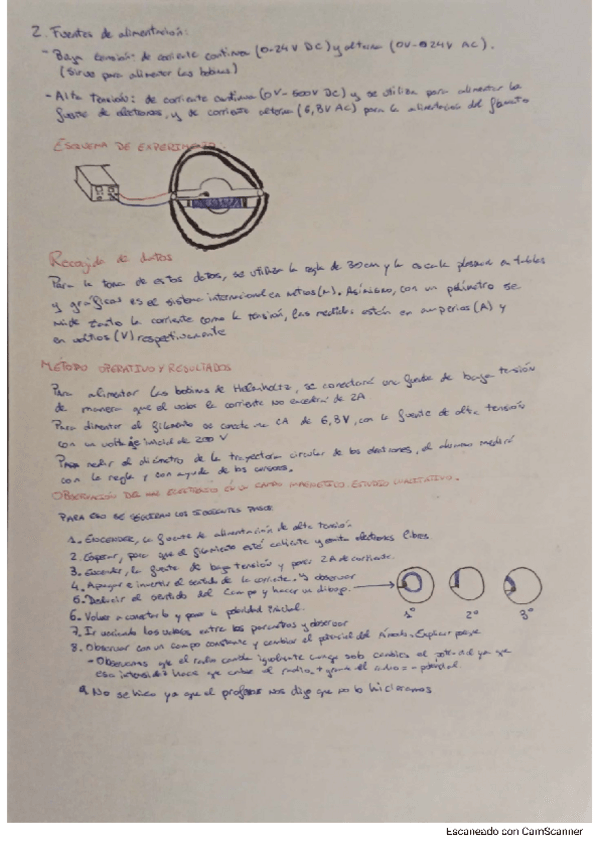 2. Fuentes de alimentación:
- Baja tensión: de corriente continua (0-24V DC) y alterna (0V-024V AC).
(Sirve para alimentar las bobinas)
- Alta Tensión: de corriente continua (0V-500V DC) y se utiliza para alimentar la
fuente de electrones, y de corriente alterna (6,3V AC) para la alimentación del filamento
ESQUEMA DE EXPERIMENTO:
Recogida de datos
Para la toma de estos datos, se utiliza la regla de 30cm y la escala en tablas
y gráficas es el sistema internacional en metros (m). Asimismo, con un polímetro se
mide tanto la corriente como la tensión, las medidas están en amperios (A) y
en voltios (V) respectivamente
MÉTODO OPERATIVO Y RESULTADOS
Para alimentar las bobinas de Helmholtz, se conectará una fuente de baja tensión
de manera que el valor la corriente no exceda de 2A
Para alimentar el filamento se conecta una CA de 6,3V, con la fuente de alta tensión
con un voltaje inicial de 200 V
Para medir el diámetro de la trayectoria circular de los electrones, el alumno medirá
con la regla y con ayuda de los cursores.
OBSERVACIÓN DEL HAZ ELECTRÓNICO EN UN CAMPO MAGNÉTICO. ESTUDIO CUALITATIVO.
PARA ELLO SE SEGUIRAN LOS SIGUIENTES PASOS
1. ENCENDER, la fuente de alimentación de alta tensión
2. Esperar, para que el filamento esté caliente y emita electrones libres
3. Encender, la fuente de baja tensión y poner 2A de corriente.
4. Apagar e invertir el sentido de la corriente. Y observar
5. Deducir el sentido del campo y hacer un dibujo.
1º 2º 3º
6. Volver a conectarlo y poner la polaridad inicial.
7. Ir variando los valores entre los parametros y observar
8. Observar con un campo constante y cambiar el potencial del ánodo. Explicar porque
- Observamos que el radio cambia igualmente aunque solo cambies el potencial ya que
esa intensidad hace que cambie el radio. + grande el radio = - potencial.
9. No se hizo ya que el profesor nos dijo que no lo hicieramos
Escaneado con CamScanner